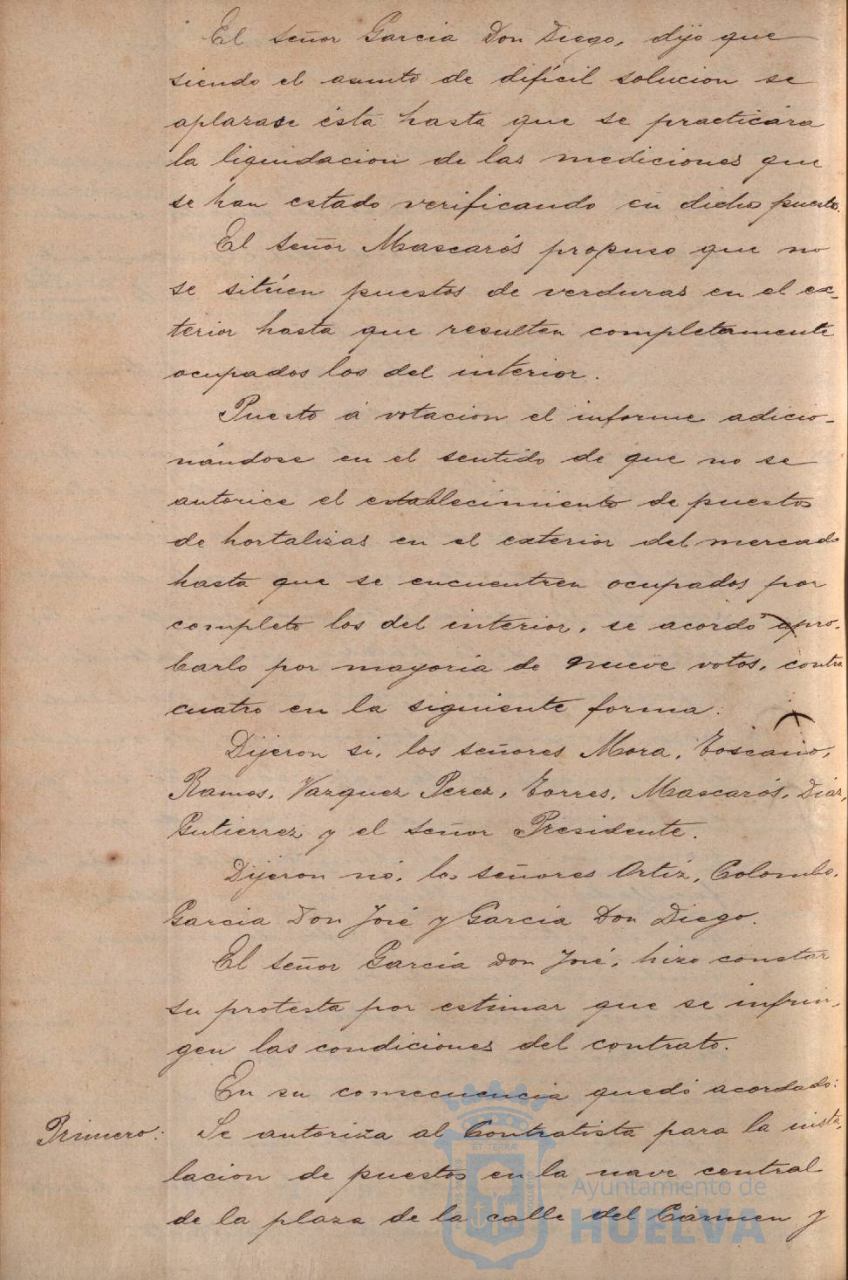 El señor Garcia Don Diego, dijo que
siendo el asunto de difícil solucion se
aplazase ésta hasta que se practicára
la liquidacion de las mediciones que
se han estado verificando en dicho puesto.
El señor Mascarós propuso que no
se sitúen puestos de verduras en el ex-
terior hasta que resulten completamente
ocupados los del interior.
Puesto á votacion el informe adicio-
nándose en el sentido de que no se
autorice el establecimiento de puestos
de hortalizas en el exterior del mercado
hasta que se encuentren ocupados por
completo los del interior, se acordó apro-
barlo por mayoria de nueve votos, contra
cuatro en la siguiente forma:
Dijeron si, los señores Mora, Toscano,
Ramos, Vazquez Perez, Torres, Mascarós, Diaz,
Gutierrez y el señor Presidente.
Dijeron nó, los señores Ortíz, Colombo,
Garcia Don José y Garcia Don Diego.
El señor Garcia Don José, hizo constar
su protesta por estimar que se infrin-
gen las condiciones del contrato.
En su consecuencia quedó acordado:
Primero: Se autoriza al Contratista para la insta-
lacion de puestos en la nave central
de la plaza de la calle del Cármen y
Ayuntamiento de
HUELVA